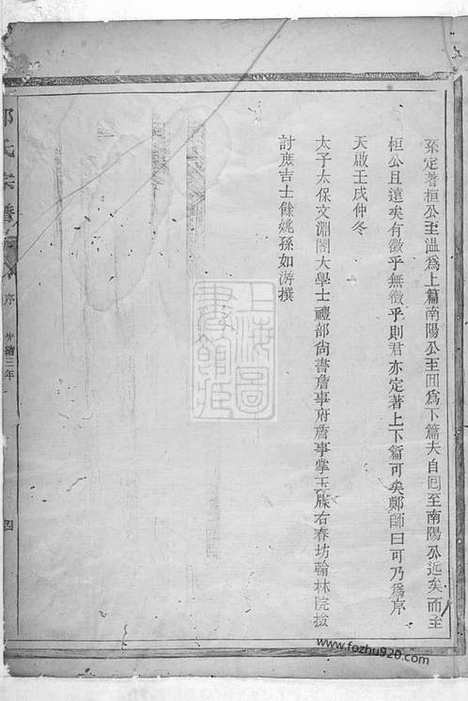 孫定著桓公至溫爲上篇南陽公至囬爲下篇夫自囘至南陽公近矣而主
桓公且遠矣有徵乎無徵乎則君亦定著上下篇可矣鄭師曰可乃爲序
天啟壬戌仲冬
太子太保文淵閣大學士禮部尙書詹事府詹事掌玉牒右春坊翰林院檢
討庶吉士餘姚孫如游撰
氏宗譜
序
光緒三年
四
上海圖書館藏
www.fozhu920.com